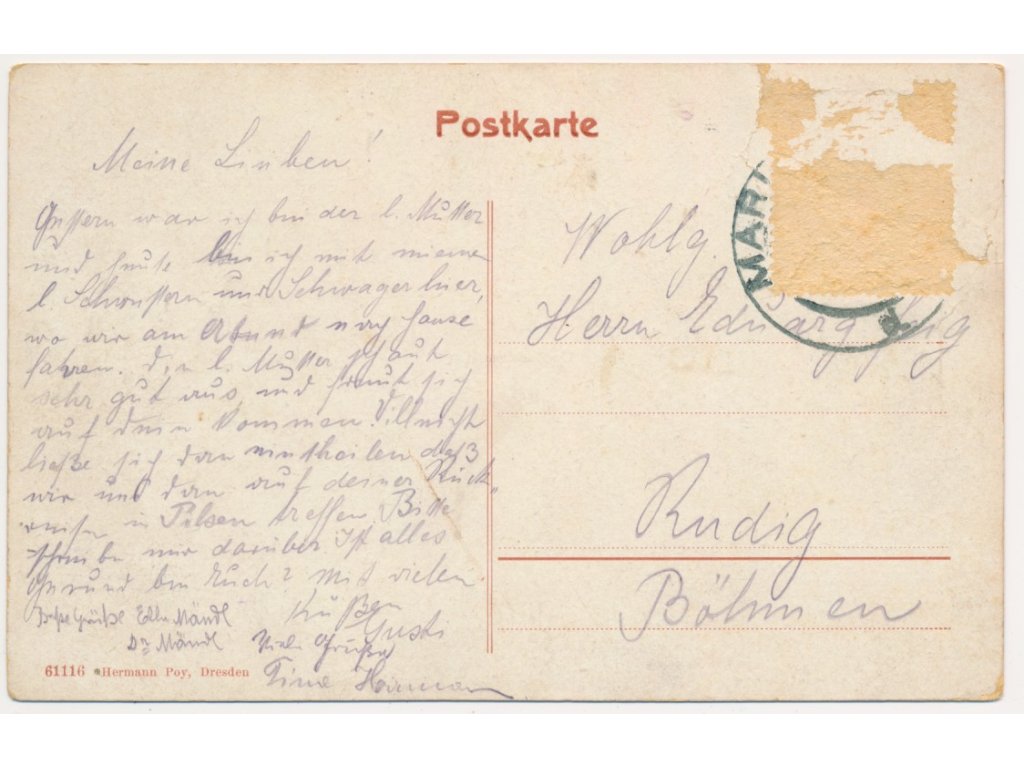 Postkarte
Meine Lieben!
Gestern war ich bei der l. Mutter
und heute bin ich mit meinen
l. Schwestern und Schwager hier,
wo wir am Abend nach Hause
fahren. Die l. Mutter schaut
sehr gut aus, und freut sich
auf dein Kommen. Villeicht
ließe sich dan eintheilen daß
wir uns dan auf deiner Rück-
reise in Pilsen treffen. Bitte
schreibe mir darüber Ist alles
gesund bei Euch? Mit vielen
Küßen
Gusti
Beste Grüße Mändl
Dr Mändl
Viele Grüße
61116 Hermann Poy, Dresden
MARI
Wohlg.
Herrn Eduard
Rudig
Böhmen